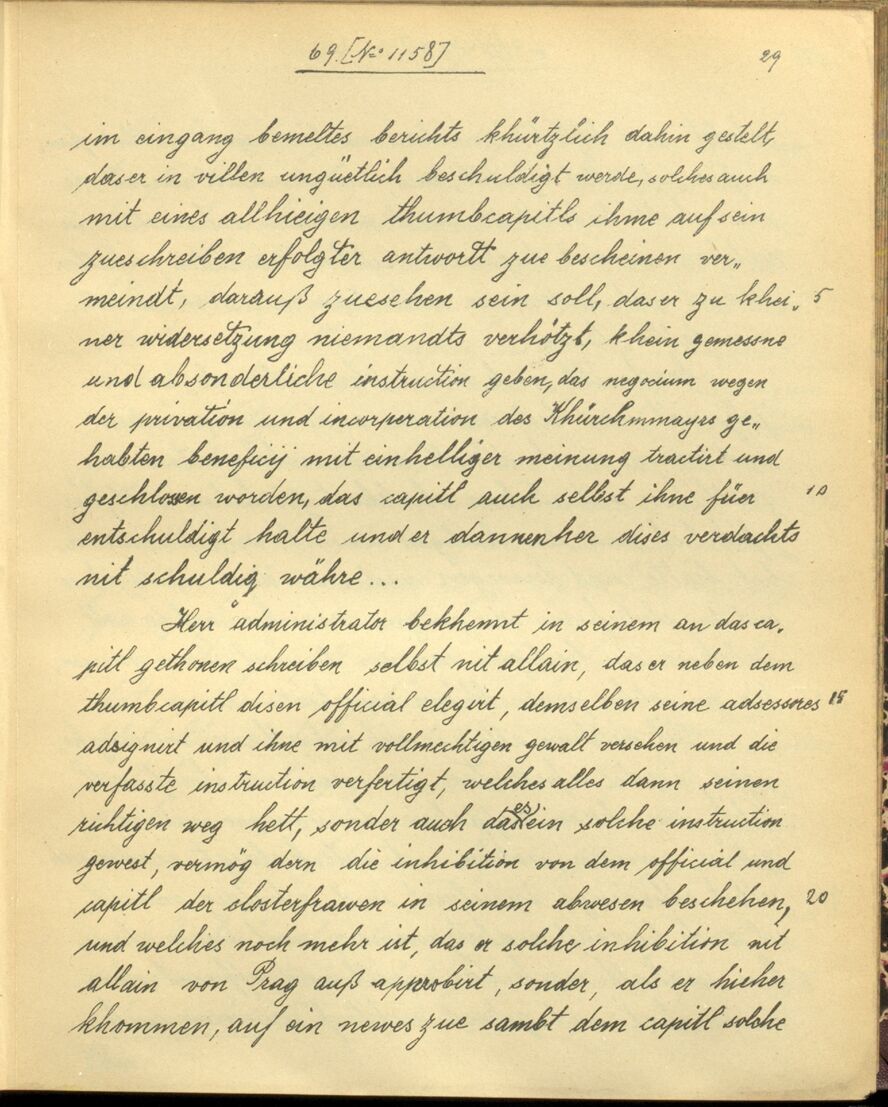 69. [No 1158]
29
im eingang bemeltes berichts khürtzlich dahin gestelt,
das er in villen ungüetlich beschuldigt werde, solches auch
mit eines allhieigen thumbcapitls ihme auf sein
zueschreiben erfolgter antwortt zue bescheinen ver„
meindt, darauß zuesehen sein soll, das er zu khei„ 5
ner widersetzung niemandts verhötzt, khein gemessne
und absonderliche instruction geben, das negocium wegen
der privation und incorperation des Khürchmmayrs ge„
habten beneficij mit einhelliger meinung tractirt und
geschlossen worden, das capitl auch selbst ihne füer 10
entschuldigt halte und er dannenher dises verdachts
nit schuldig währe...
Herr administrator bekhennt in seinem an das ca„
pitl gethonen schreiben selbst nit allain, das er neben dem
thumbcapitl disen official elegirt, demselben seine adsessores 15
adsignirt und ihne mit vollmechtigen gewalt versehen und die
verfasste instruction verfertigt, welches alles dann seinen
richtigen weg hett, sonder auch das es ein solche instruction
gewest, vermög dern die inhibition von dem official und
capitl der closterfrawen in seinem abwesen beschehen, 20
und welches noch mehr ist, das er solche inhibition nit
allain von Prag auß approbirt, sonder, als er hieher
khommen, auf ein newes zue sambt dem capitl solche